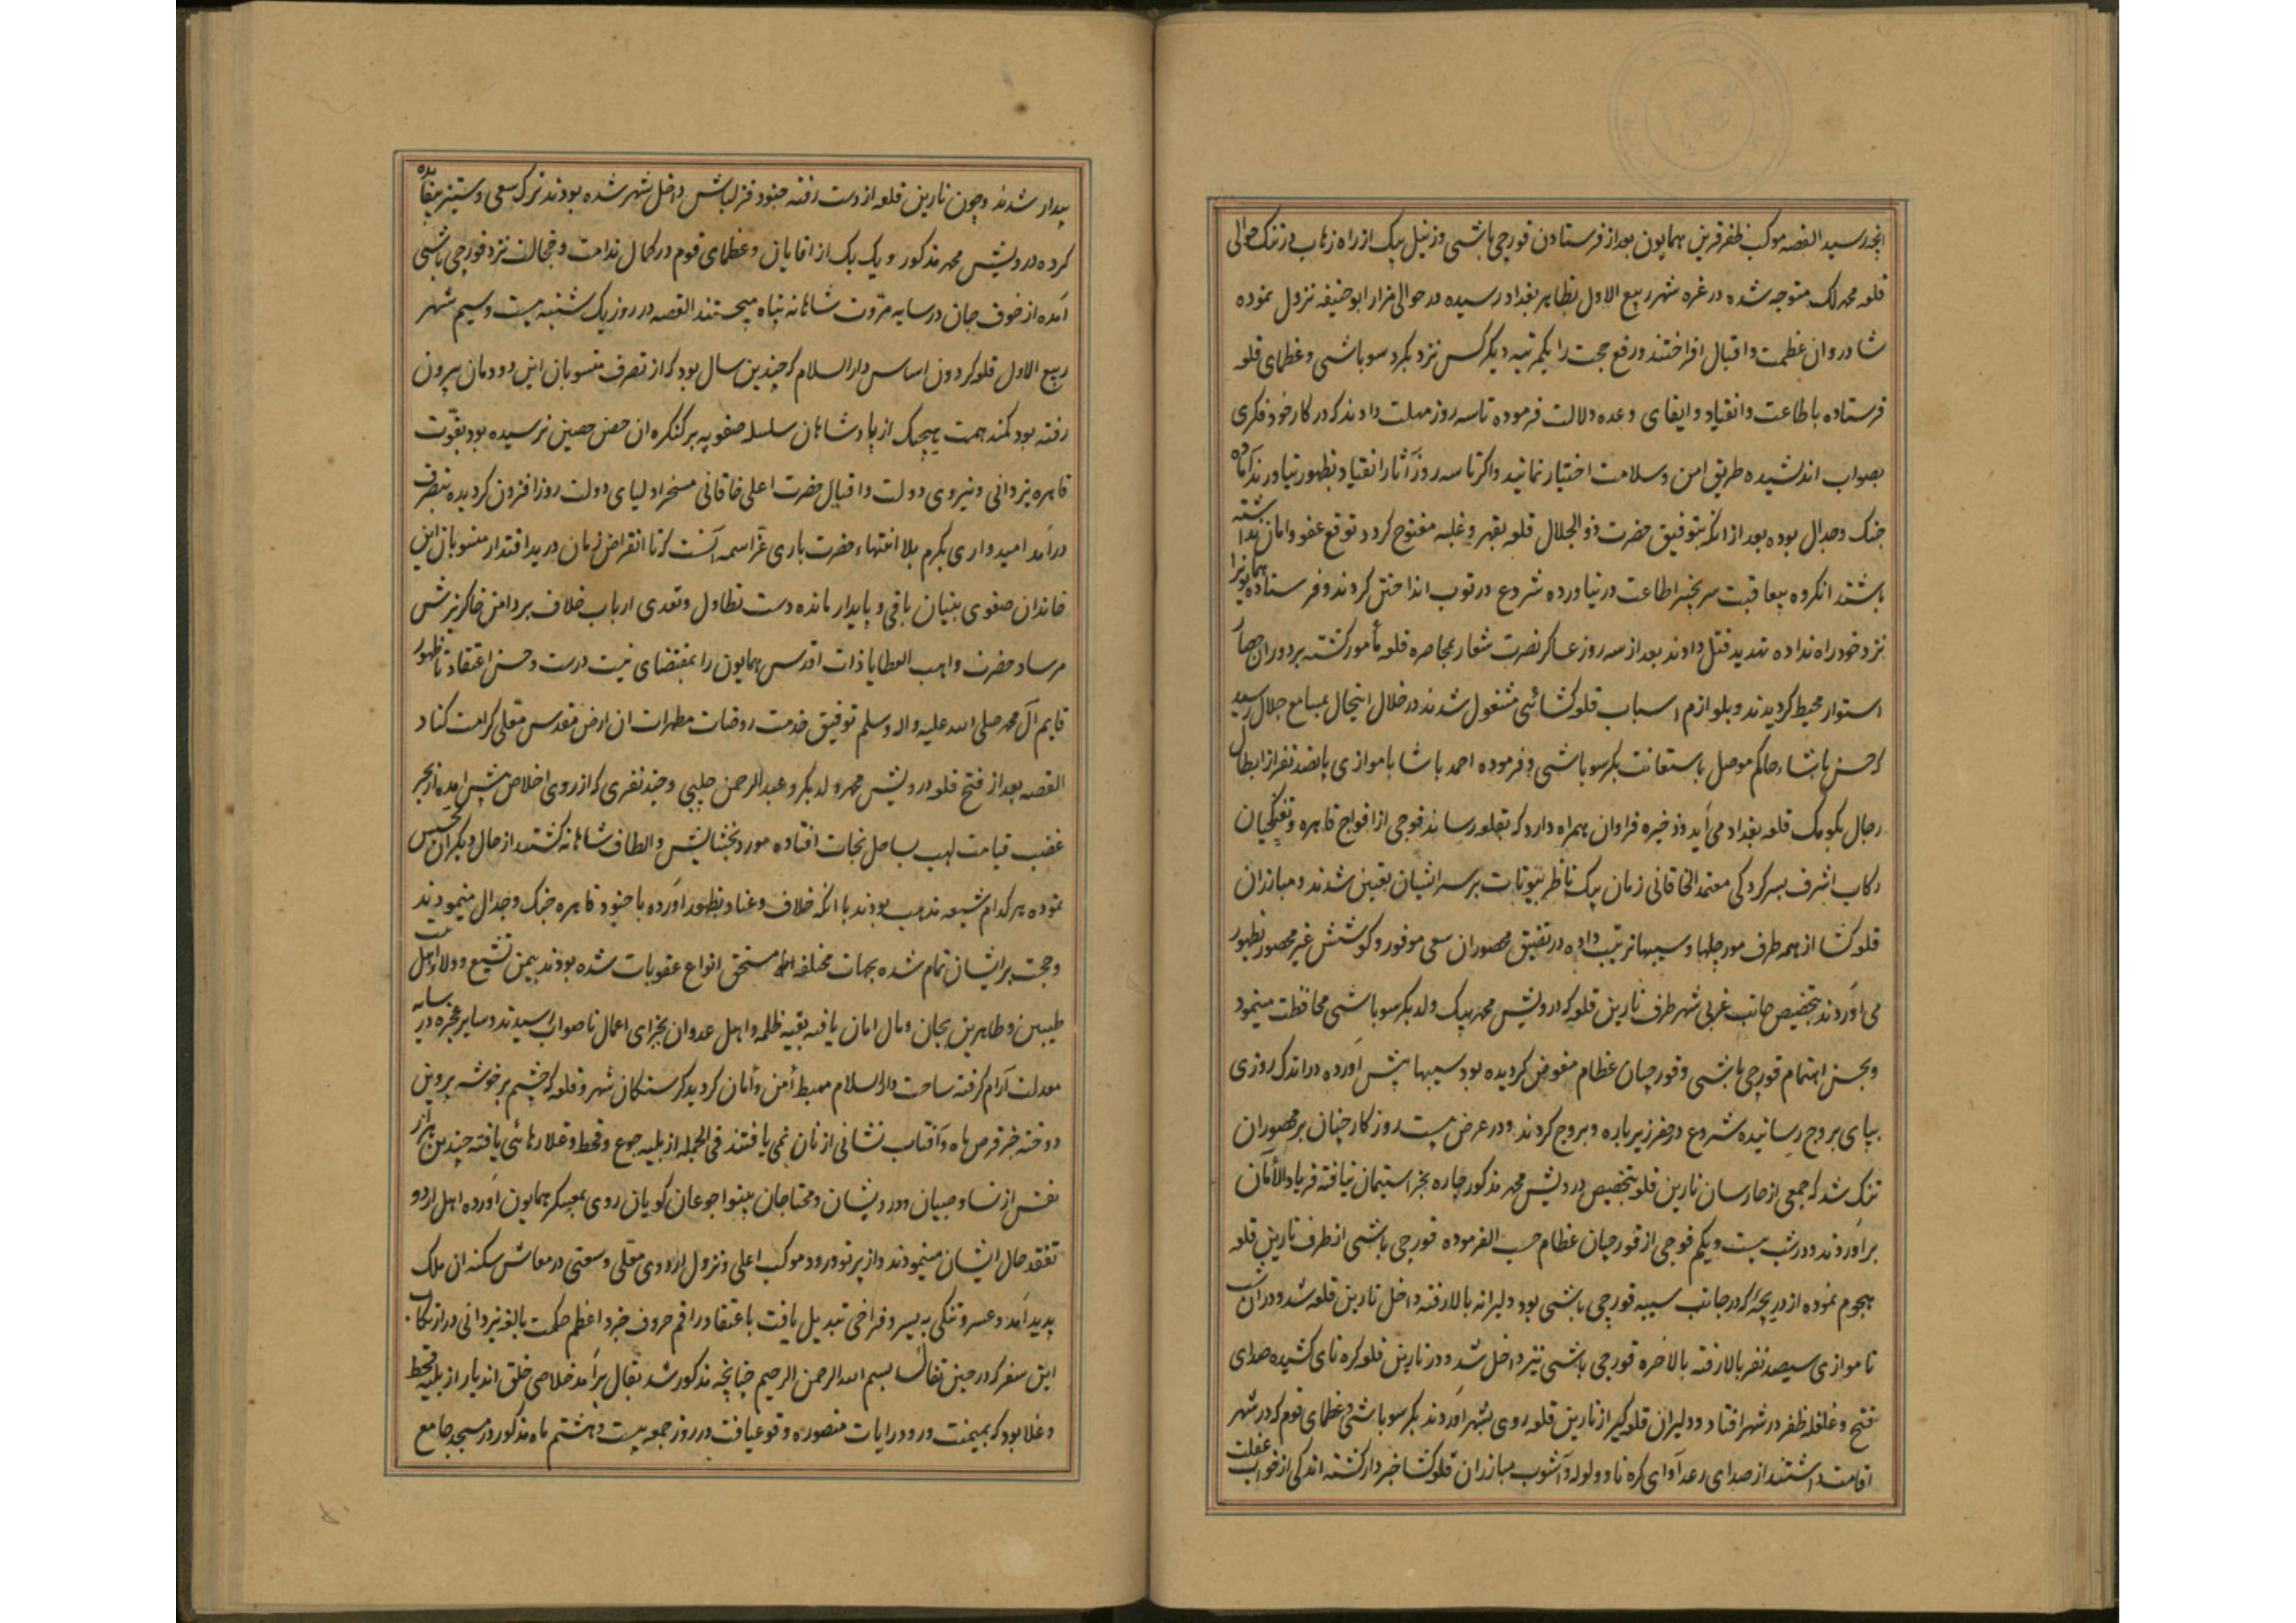 انجدر سید القصه موکب ظفر قرین همایون بعد از فرستادن قورچی باشی و زینل بیک از راه زهاب درتنک حوالی
قلعه محمد لک متوجه شده در غره شهر ربیع الاول بظاهر بغداد رسیده در حوالی مزار ابو حنیفه نزول نموده
شادروان عظمت و اقبال افراختند و رفع حجت را یکمرتبه دیگر کس نزد بکر سوباشی و عظمای قلعه
فرستاده باطاعت و انقیاد و ایفای وعده دلالت فرموده تا سه روز مهلت دادند که در کار خود فکری
بصواب اندیشیده طریق امن و سلامت اختیار نمایند و اگر تا سه روز آثار انقیاد بظهور نیاورند آماده
جنک و جدال بوده بعد از انکه بتوفیق حضرت ذو الجلال قلعه بقهر و غلبه مفتوح کردد توقع عفو و امان نداشته
باشند انکروه بیعاقبت سر بچنبر اطاعت در نیاورده شروع در توب انداختن کردند و فرستاده همایونرا
نزد خود راه نداده تهدید قتل دادند بعد از سه روز عساکر نصرت شعار بمحاصره قلعه مأمور کشته بر دوران حصار
استوار محیط کردیدند و بلوازم اسباب قلعه کشائی مشغول شدند در خلال اینحال بمسامع جلال رسید
که حسن پاشا حاکم موصل باستعانت بکر سوباشی و فرموده احمد پاشا با موازی پانصد نفر از ابطال
رجال بکومک قلعه بغداد می آید و ذخیره فراوان همراه دارد که بقلعه رساند فوجی از افواج قاهره و تفنکچیان
رکاب اشرف بسرکردکی معتمد الخاقانی زمان بیک ناظر بیوتات بر سر ایشان تعیین شدند و مبارزان
قلعه کشا از همه طرف مورچلها و سیبها ترتیب داده در تضییق محصوران سعی موفور و کوشش غیر محصور بظهور
می آوردند بتخصیص جانب غربی شهر طرف نارین قلعه که درویش محمد بیک ولد بکر سوباشی محافظت مینمود
و بحسن اهتمام قورچی باشی و قورچیان عظام مفوض کردیده بود سیبها پیش آورده در اندک روزی
بپای بروج رسانیده شروع در حفر زیر باره و بروج کردند و در عرض بیست روز کار چنان بر محصوران
تنک شد که جمعی از حارسان نارین قلعه بتخصیص درویش محمد مذکور چاره بجز استیمان نیافته فریاد الأمان
برآوردند و در شب بیست و یکم فوجی از قورچیان عظام حسب الفرموده قورچی باشی از طرف نارین قلعه
هجوم نموده از دریچه که در جانب سیبه قورچی باشی بود دلیرانه بالا رفته داخل نارین قلعه شد و در ان شب
تا موازی سیصد نفر بالا رفته بالاخره قورچی باشی نیز داخل شد و در نارین قلعه کره نای کشیده صدای
فتح و غلغله ظفر در شهر افتاد و دلیران قلعه کیر از نارین قلعه روی بشهر آوردند بکر سوباشی و عظمای قوم که در شهر
اقامت داشتند از صدای رعد آوای کره نا و ولوله و آشوب مبارزان قلعه کشا خبردار کشته اندکی از خواب غفلت
بیدار شدند و چون نارین قلعه از دست رفته جنود قزلباش داخل شهر شده بودند ترک سعی و ستیز بیفایده
کرده درویش محمد مذکور و یک یک از اقایان و عظمای قوم در کمال ندامت و خجالت نزد قورچی باشی
آمده از خوف جان در سایه مروت شاهانه پناه میجستند القصه در روز یک شنبه بیست و سیم شهر
ربیع الاول قلعه کردون اساس دار السلام که چندین سال بود که از تصرف منسوبان این دودمان بیرون
رفته بود کمند همت هیچیک از پادشاهان سلسله صفویه بر کنکره ان حصن حصین نرسیده بود بقوّت
قاهره یزدانی و نیروی دولت و اقبال حضرت اعلی خاقانی مسخر اولیای دولت روز افزون کردیده بتصرف
درآمد امیدواری بکرم بلا انتهاء حضرت باری عزّ اسمه آنست که تا انقراض زمان در ید اقتدار منسوبان این
خاندان صفوی بنیان باقی و پایدار مانده دست تطاول و تعدی ارباب خلاف بر دامن خاکریزش
مرساد حضرت واهب العطایا ذات اقدس همایون را بمقتضای نیت درست و حسن اعتقاد تا ظهور
قایم آل محمد صلی الله علیه واله وسلم توفیق خدمت روضات مطهرات ان ارض مقدس معلی کرامت کناد
القصه بعد از فتح قلعه درویش محمد ولد بکر و عبد الرحمن چلبی و چند نفری که از روی اخلاص پیش آمده از بحر
غضب قیامت لهب بساحل نجات افتاده مورد بخشایش و الطاف شاهانه کشتند از حال دیکران تجسس
نموده هر کدام شیعه مذهب بودند با انکه خلاف و عناد بظهور آورده با جنود قاهره جنک و جدال مینمودند
و حجت بر ایشان تمام شده بجهات مختلفه مستحق انواع عقوبات شده بودند بیمن تشیع و ولاء اهل بیت
طیبین و طاهرین بجان و مال امان یافته بقیه ظلمه و اهل عدوان بجزای اعمال ناصواب رسیدند و سایر عجزه در سایه
معدلت آرام کرفته ساحت دار السلام مهبط أمن و أمان کردید کرسنکان شهر و قلعه که چشم بر خوشه پروین
دوخته جز قرص ماه و آفتاب نشانی از نان نمی یافتند فی الجمله از بلیه جوع و قحط و غلا رهائی یافته چندین هزار
نفس از نسا و صبیان و درویشان و محتاجان بینوا جوعان کویان روی بمعسکر همایون آورده اهل اردو
تفقد حال ایشان مینمودند و از پرتو ورود موکب اعلی و نزول اردوی معلی وسعتی در معاش سکنه ان ملک
پدید آمد و عسر و تنکی به یسر و فراخی تبدیل یافت باعتقاد راقم حروف جزو اعظم حکمت بالغه یزدانی در ارتکاب
این سفر که در حین تفأل بسم الله الرحمن الرحیم چنانچه مذکور شد بفال برآمد خلاصی خلق اندیار از بلیه قحط
و غلا بود که بمیمنت ورود رایات منصوره وقوع یافت در روز جمعه بیست و هشتم ماه مذکور در مسجد جامع